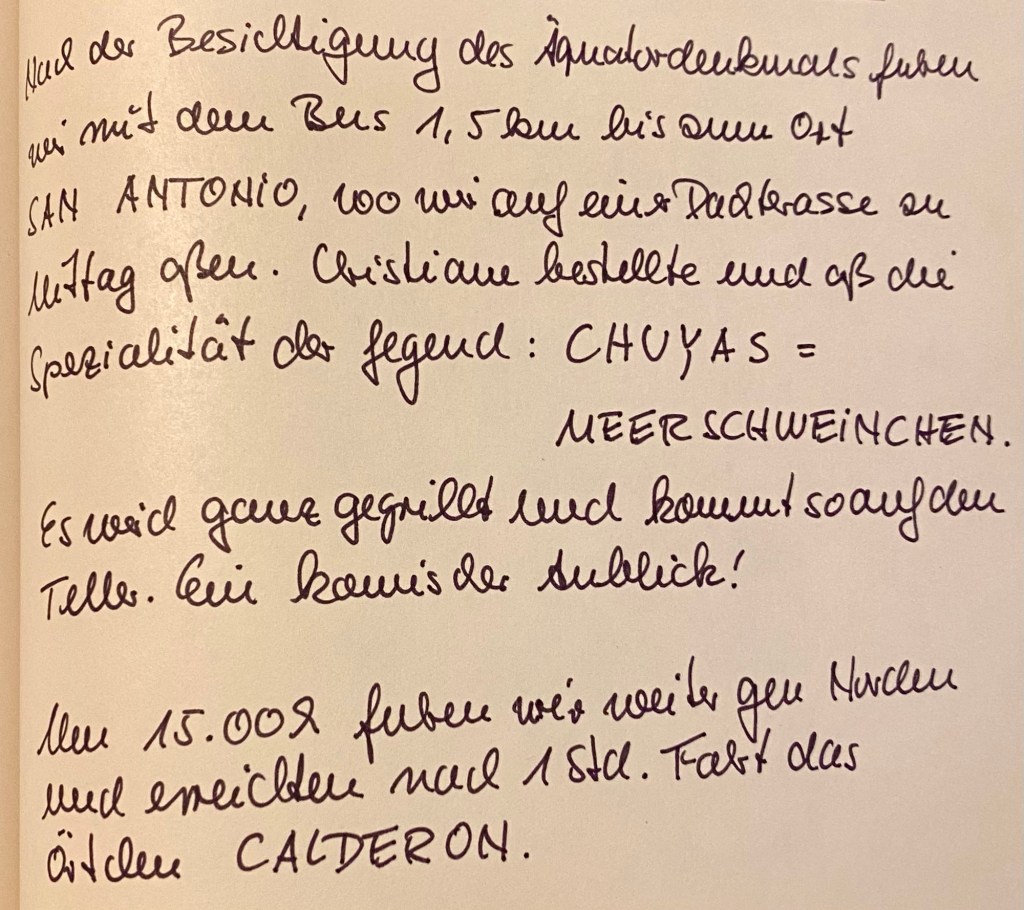 Nach der Besichtigung des Äquatordenkmals fuhren
wir mit dem Bus 1,5 km bis zum Ort
SAN ANTONIO, wo wir auf einer Dachterasse zu
Mittag aßen. Christiane bestellte und aß die
Spezialität der Gegend: CHUYAS =
MEERSCHWEINCHEN.
Es wird ganz gegrillt und kommt so auf den
Teller. Ein komischer Anblick!
Um 15.00h fuhren wir weiter gen Norden
und erreichten nach 1 Std. Fahrt das
Örtchen CALDERON.